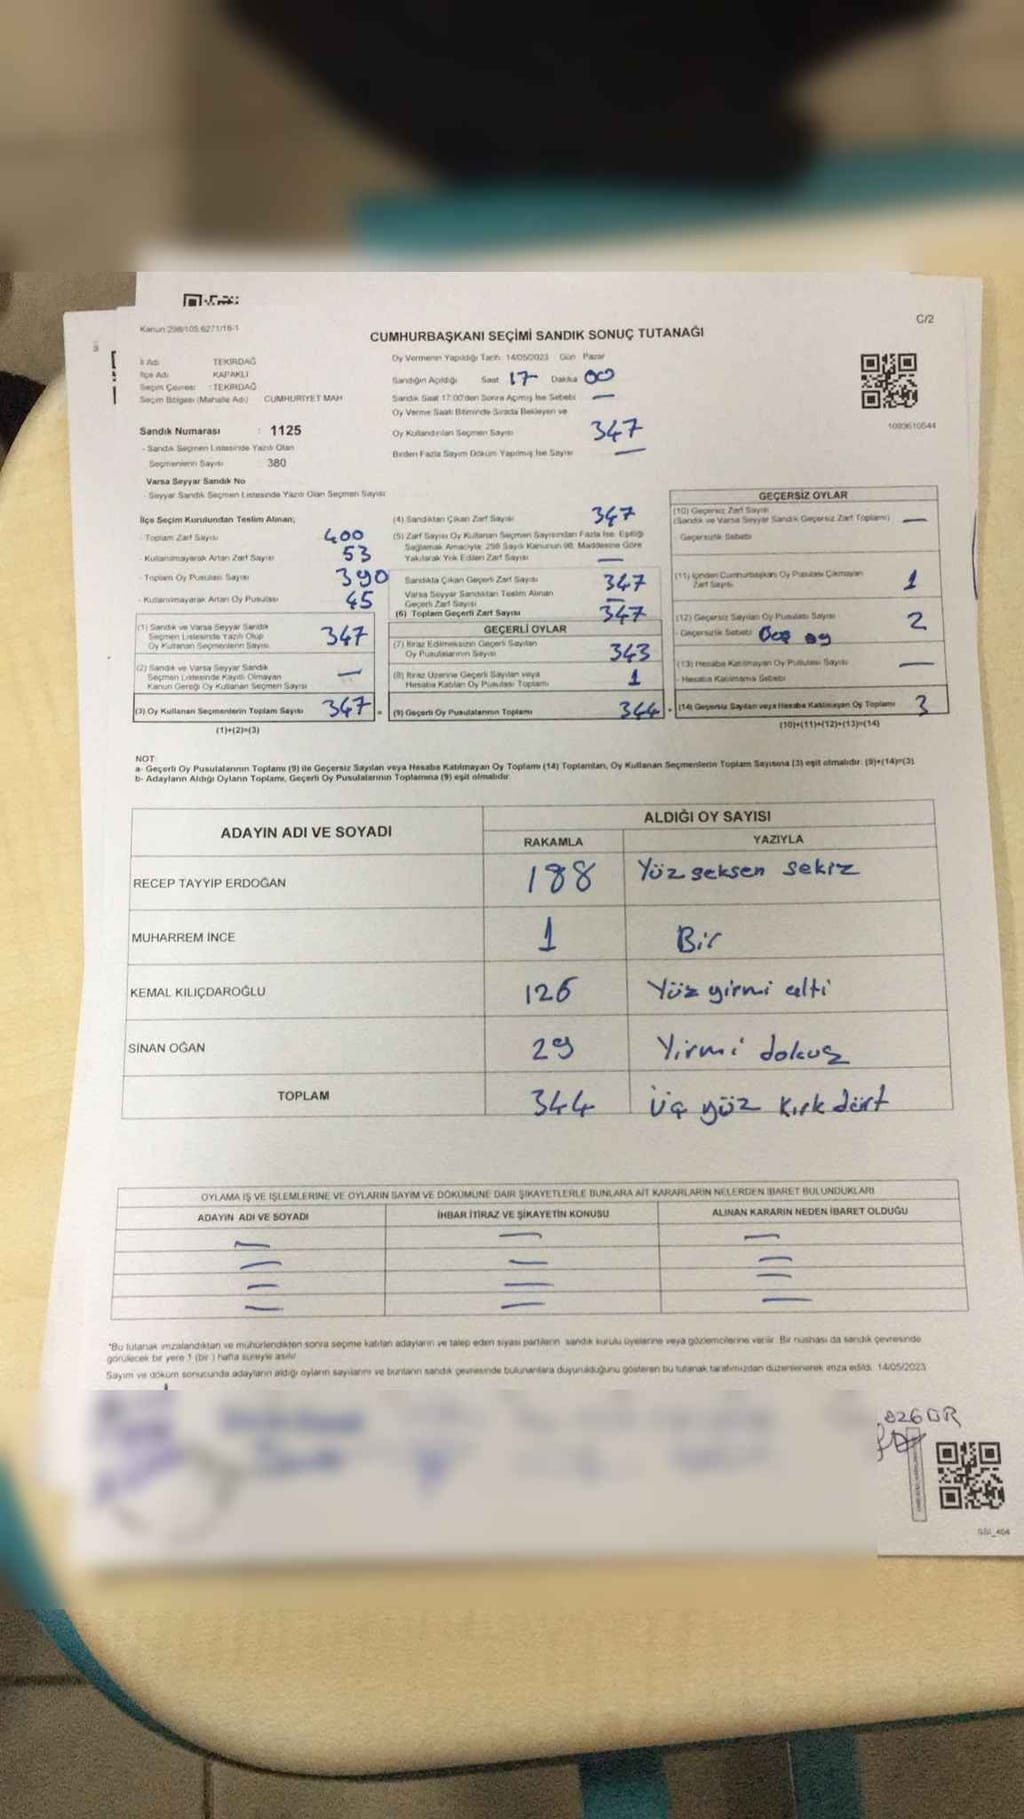 Kanun:298/105.6271/16-1
C/2
CUMHURBAŞKANI SEÇİMİ SANDIK SONUÇ TUTANAĞI
İl Adı TEKİRDAĞ
İlçe Adı KAPAKLI
Seçim Çevresi : TEKİRDAĞ
Seçim Bölgesi (Mahalle Adı) CUMHURİYET MAH
Sandık Numarası : 1125
- Sandık Seçmen Listesinde Yazılı Olan
Seçmenlerin Sayısı 380
Varsa Seyyar Sandık No
- Seyyar Sandık Seçmen Listesinde Yazılı Olan Seçmen Sayısı
Oy Vermenin Yapıldığı Tarih 14/05/2023 Gün Pazar
Sandığın Açıldığı Saat 17 Dakika 00
Sandık Saat 17:00'den Sonra Açılmış İse Sebebi —
Oy Verme Saati Bitiminde Sırada Bekleyen ve
Oy Kullandırılan Seçmen Sayısı 347
Birden Fazla Sayım Döküm Yapılmış İse Sayısı —
1093610544
İlçe Seçim Kurulundan Teslim Alınan;
- Toplam Zarf Sayısı 400
- Kullanılmayarak Artan Zarf Sayısı 53
- Toplam Oy Pusulası Sayısı 390
- Kullanılmayarak Artan Oy Pusulası 45
(1) Sandık ve Varsa Seyyar Sandık
Seçmen Listesinde Yazılı Olup
Oy Kullanan Seçmenlerin Sayısı 347
(2) Sandık ve Varsa Seyyar Sandık
Seçmen Listesinde Kayıtlı Olmayan
Kanun Gereği Oy Kullanan Seçmen Sayısı —
(3) Oy Kullanan Seçmenlerin Toplam Sayısı 347 =
(1)+(2)=(3)
(4) Sandıktan Çıkan Zarf Sayısı 347
(5) Zarf Sayısı Oy Kullanan Seçmen Sayısından Fazla İse, Eşitliği
Sağlamak Amacıyla 298 Sayılı Kanunun 98. Maddesine Göre
Yakılarak Yok Edilen Zarf Sayısı —
Sandıkta Çıkan Geçerli Zarf Sayısı 347
Varsa Seyyar Sandıktan Teslim Alınan
Geçerli Zarf Sayısı —
(6) Toplam Geçerli Zarf Sayısı 347
GEÇERLİ OYLAR
(7) İtiraz Edilmeksizin Geçerli Sayılan
Oy Pusulalarının Sayısı 343
(8) İtiraz Üzerine Geçerli Sayılan veya
Hesaba Katılan Oy Pusulası Toplamı 1
(9) Geçerli Oy Pusulalarının Toplamı 344 +
GEÇERSİZ OYLAR
(10) Geçersiz Zarf Sayısı
(Sandık ve Varsa Seyyar Sandık Geçersiz Zarf Toplamı) —
Geçersizlik Sebebi
(11) İçinden Cumhurbaşkanı Oy Pusulası Çıkmayan
Zarf Sayısı 1
(12) Geçersiz Sayılan Oy Pusulası Sayısı 2
- Geçersizlik Sebebi Boş oy
(13) Hesaba Katılmayan Oy Pusulası Sayısı —
- Hesaba Katılmama Sebebi
(14) Geçersiz Sayılan veya Hesaba Katılmayan Oy Toplamı 3
(10)+(11)+(12)+(13)=(14)
NOT:
a- Geçerli Oy Pusulalarının Toplamı (9) ile Geçersiz Sayılan veya Hesaba Katılmayan Oy Toplamı (14) Toplamları, Oy Kullanan Seçmenlerin Toplam Sayısına (3) eşit olmalıdır. (9)+(14)=(3)
b- Adayların Aldığı Oyların Toplamı, Geçerli Oy Pusulalarının Toplamına (9) eşit olmalıdır.
ADAYIN ADI VE SOYADI ALDIĞI OY SAYISI
RAKAMLA YAZIYLA
RECEP TAYYİP ERDOĞAN 188 Yüz seksen sekiz
MUHARREM İNCE 1 Bir
KEMAL KILIÇDAROĞLU 126 Yüz yirmi altı
SİNAN OĞAN 29 Yirmi dokuz
TOPLAM 344 Üç yüz kırk dört
OYLAMA İŞ VE İŞLEMLERİNE VE OYLARIN SAYIM VE DÖKÜMÜNE DAİR ŞİKAYETLERLE BUNLARA AİT KARARLARIN NELERDEN İBARET BULUNDUKLARI
ADAYIN ADI VE SOYADI İHBAR İTİRAZ VE ŞİKAYETİN KONUSU ALINAN KARARIN NEDEN İBARET OLDUĞU
— — —
— — —
— — —
— — —
*Bu tutanak imzalandıktan ve mühürlendikten sonra seçime katılan adayların ve talep eden siyasi partilerin sandık kurulu üyelerine veya gözlemcilerine verilir. Bir nüshası da sandık çevresinde
görülecek bir yere 1 (bir ) hafta süreyle asılır.
Sayım ve döküm sonucunda adayların aldığı oyların sayılarını ve bunların sandık çevresinde bulunanlara duyurulduğunu gösteren bu tutanak tarafımızdan düzenlenerek imza edildi. 14/05/2023